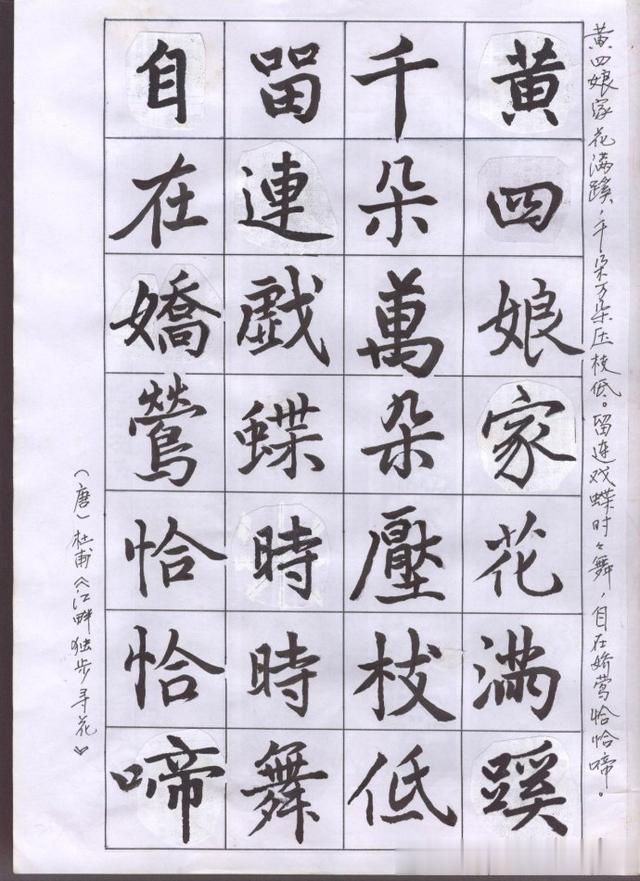 黄四娘家花满蹊，千朵万朵压枝低。留连戏蝶时々舞，自在娇莺恰恰啼。
黄四娘家花滿蹊
千朵萬朵壓枝低
留連戲蝶時時舞
自在嬌鶯恰恰啼
（唐）杜甫《江畔独步寻花》